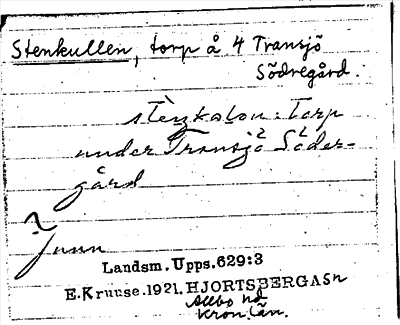 Stenkullen, torp å 4 Transjö
Södregård.
stènkolon: Torp
under Transjö Söder-
gård
?
Landsm. Upps. 629:3
E.Kruuse.1921. HJORTSBERGA Sn
Allbo hd
Kron. län.